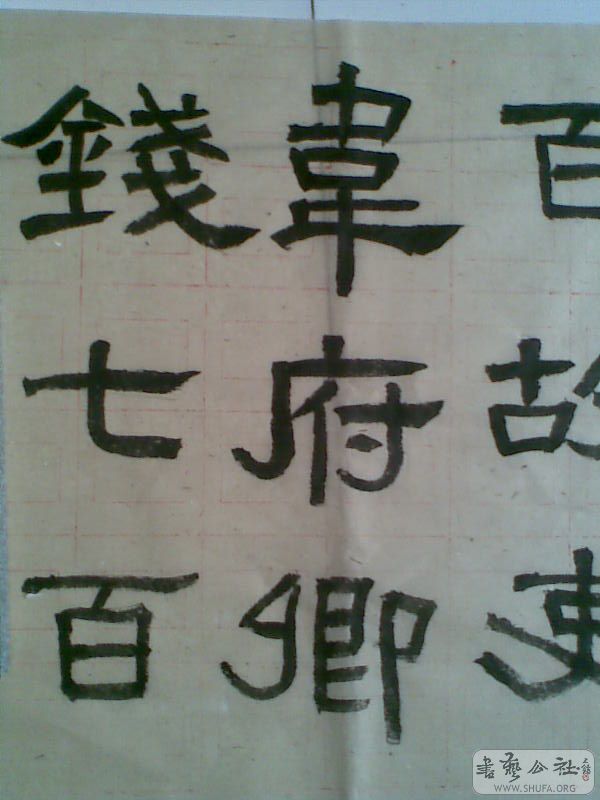 百故吏
韋府卿
錢七百
書藝公社
WWW.SHUFA.ORG